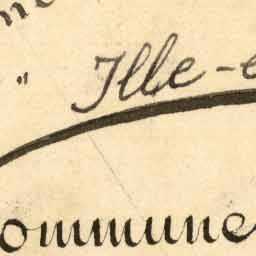 ne
" Ille-e
ommune